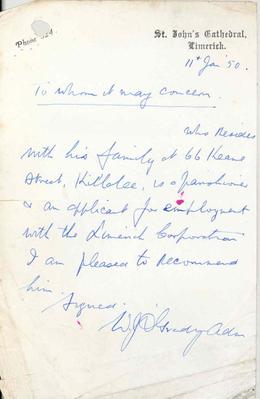 Phone 324.
St. John's Cathedral,
Limerick.
11th Jan '50.
To whom it may concern.
who Resides
with his family at 66 Keane
Street, Killalee, is a parishioner
& an applicant for employment
with the Limerick Corporation
I am pleased to Recommend
him
Signed.
W J O'Grady Adm